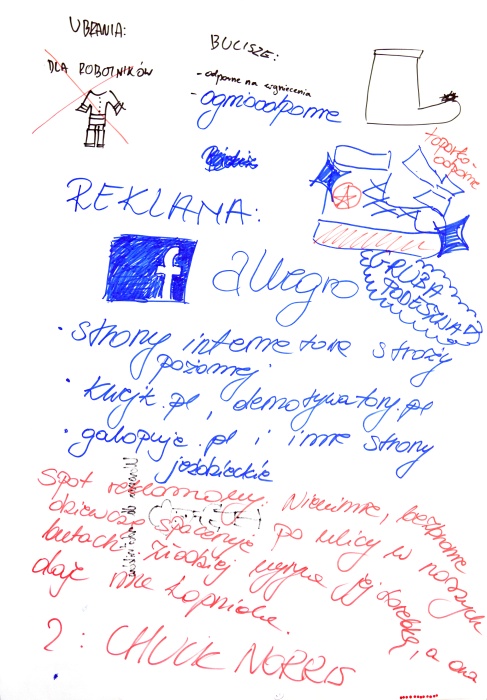 UBRANIA:
DLA ROBOTNIKÓW
BUCISZE:
- odporne na zgniecenia
- ognioodporne
toporko-
odporne
REKLAMA:
f
allegro
GRUBA
PODESZWA
• strony internetowe straży
pożarnej
• kwejk.pl, demotywatory.pl
• galopuje.pl i inne strony
jeździeckie
Spot reklamowy: Niewinne, bezbronne
dziewczę spaceruje po ulicy w naszych
butach. Złodziej wyrywa jej torebkę, a ona
daje mu kopniaka.
2: CHUCK NORRIS